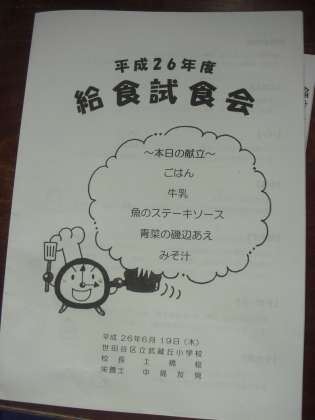 平成26年度
給食試食会
～本日の献立～
ごはん
牛乳
魚のステーキソース
青菜の磯辺あえ
みそ汁
平成26年6月19日(木)
世田谷区立武蔵丘小学校
校長
栄養士